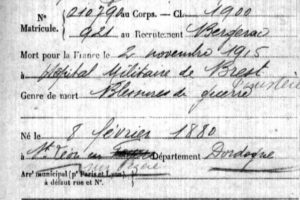 Nº 21079 au Corps. — Cl. 1900
Matricule. 921 au Recrutement Bergerac
Mort pour la France le 2 novembre 1915
à Hôpital Militaire de Brest
Genre de mort Blessures de guerre
Né le 8 février 1880
à St Léon Département Dordogne
Arrᵗ municipal (pʳ Paris et Lyon)
à défaut rue et Nº